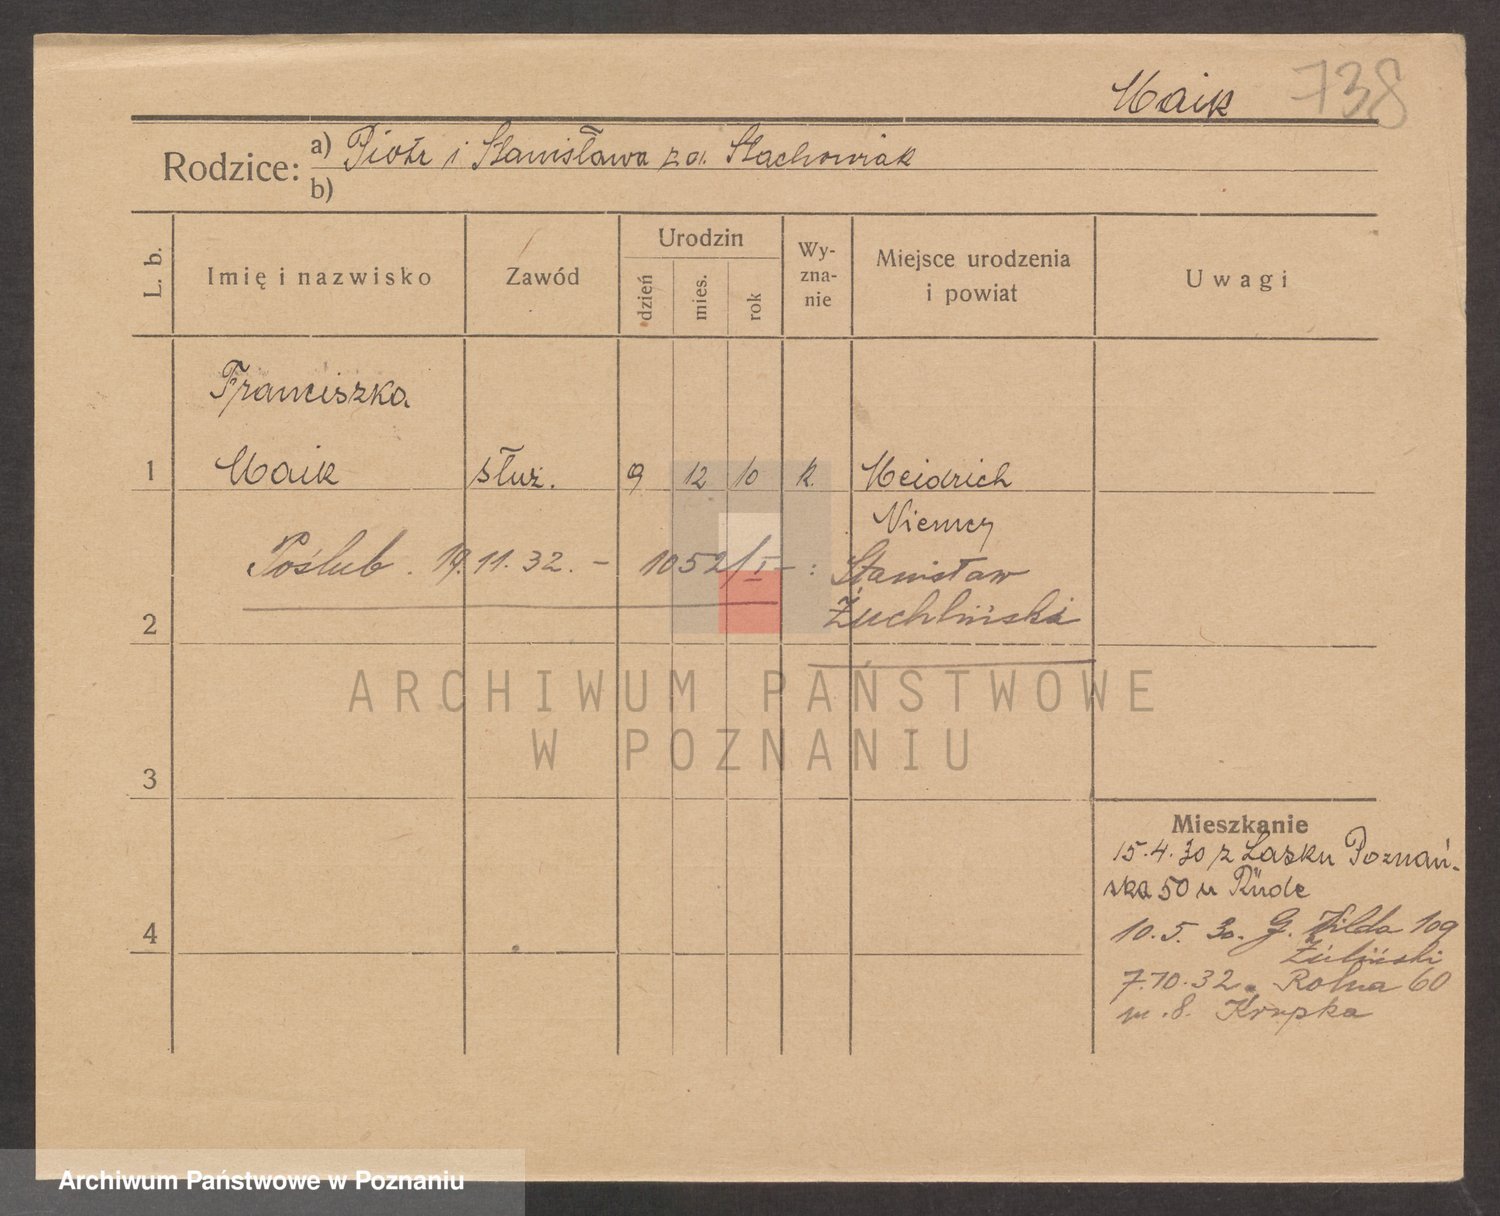 Maik 738
Rodzice: a) Piotr i Stanisława z d. Stachowiak
b)
L. b.
Imię i nazwisko
Zawód
Urodzin
dzień
mies.
rok
Wy-
zna-
nie
Miejsce urodzenia
i powiat
Uwagi
Franciszka
1 Maik służ. 9 12 10 k. Meidrich
Niemcy
Poślub. 19.11.32. – 1052/I – : Stanisław
2 Żuchliński
ARCHIWUM PAŃSTWOWE
W POZNANIU
3
Mieszkanie
15.4.30 z Lasku Poznań-
ska 50 u Rüde
4 10.5.30. G. Wilda 109
Żuliński
7.10.32. Rolna 60
m.8. Krupka
Archiwum Państwowe w Poznaniu